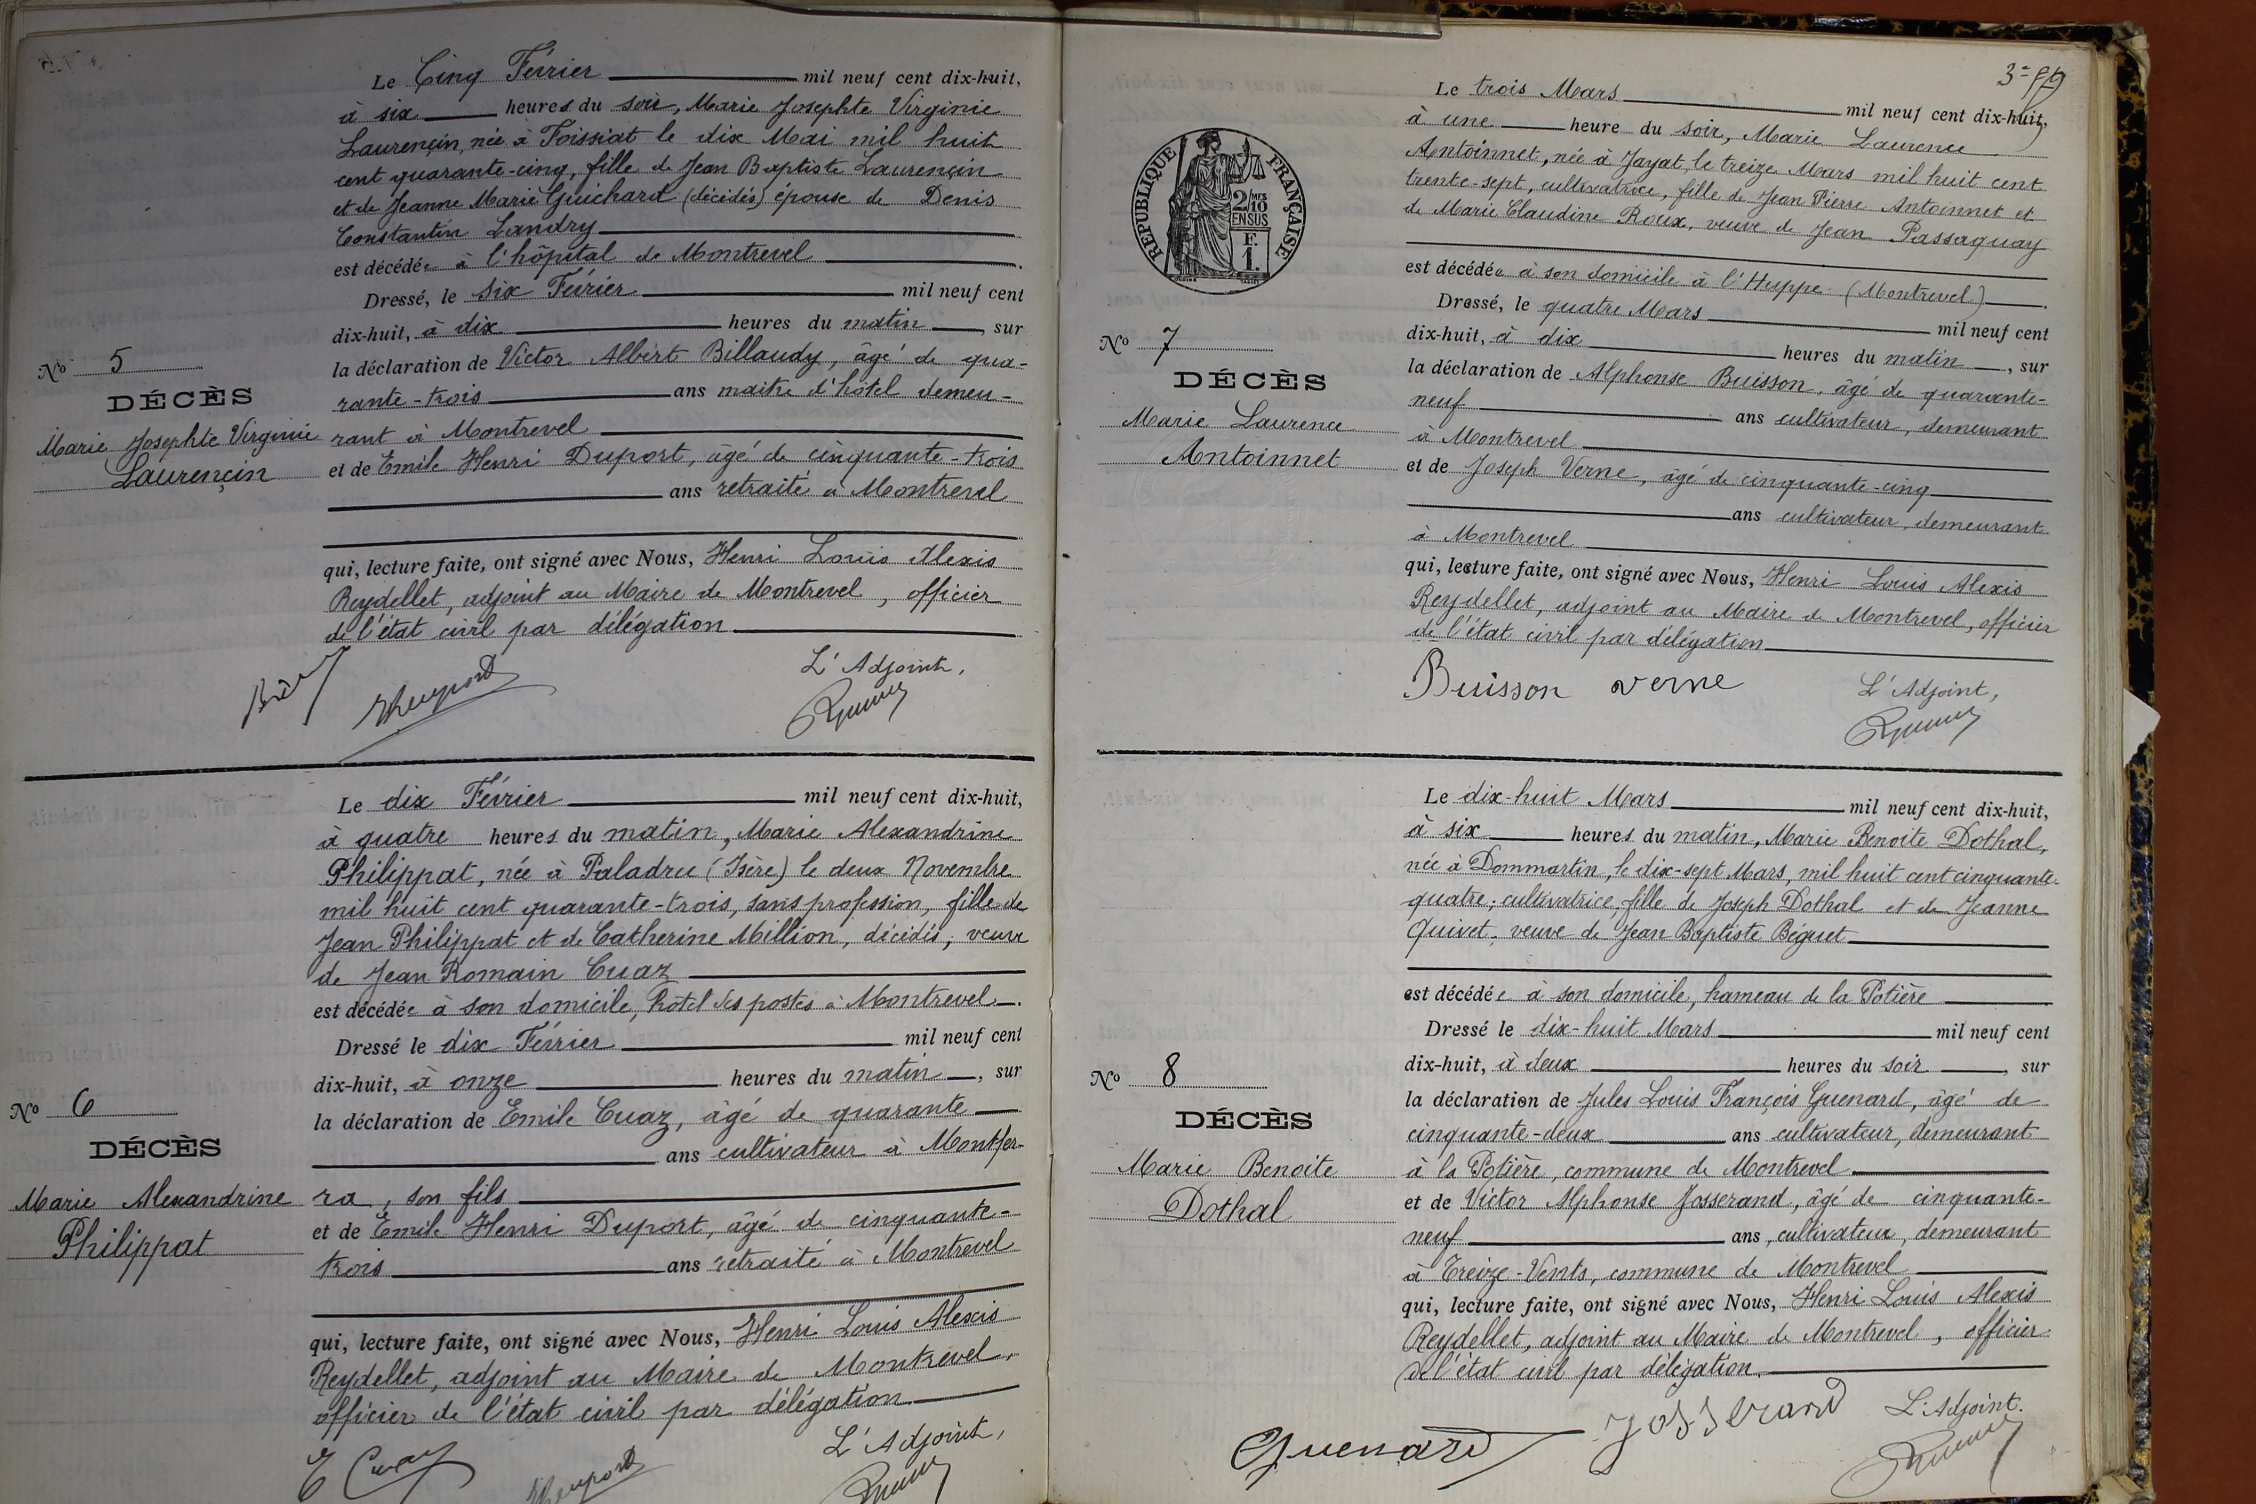 Le Cinq Février mil neuf cent dix-huit,
à six heures du soir, Marie Josephte Virginie
Laurençin, née à Foissiat le dix Mai mil huit
cent quarante-cinq, fille de Jean Baptiste Laurençin
et de Jeanne Marie Guichard (décédés) épouse de Denis
Constantin Landry
est décédée à l'hôpital de Montrevel
Dressé, le six Février mil neuf cent
dix-huit, à dix heures du matin, sur
la déclaration de Victor Albert Billaudy, âgé de qua-
rante-trois ans maître d'hôtel demeu-
rant à Montrevel
et de Emile Henri Duport, âgé de cinquante-trois
ans retraité à Montrevel
qui, lecture faite, ont signé avec Nous, Henri Louis Alexis
Reydellet, adjoint au Maire de Montrevel, officier
de l'état civil par délégation
L'Adjoint,
No 5
DÉCÈS
Marie Josephte Virginie
Laurençin
Le dix Février mil neuf cent dix-huit,
à quatre heures du matin, Marie Alexandrine
Philippat, née à Paladru (Isère) le deux Novembre
mil huit cent quarante-trois, sans profession, fille de
Jean Philippat et de Catherine Million, décédés, veuve
de Jean Romain Cuaz
est décédée à son domicile, hôtel des postes à Montrevel.
Dressé le dix Février mil neuf cent
dix-huit, à onze heures du matin, sur
la déclaration de Emile Cuaz, âgé de quarante
ans cultivateur à Montfer-
ra, son fils
et de Emile Henri Duport, âgé de cinquante-
trois ans retraité à Montrevel
qui, lecture faite, ont signé avec Nous, Henri Louis Alexis
Reydellet, adjoint au Maire de Montrevel,
officier de l'état civil par délégation.
L'Adjoint,
E Cuaz
No 6
DÉCÈS
Marie Alexandrine
Philippat
RÉPUBLIQUE FRANÇAISE
2/10
MES
EN SUS
F.
1.
Le trois Mars mil neuf cent dix-huit,
à une heure du soir, Marie Laurence
Antoinnet, née à Jayat, le treize Mars mil huit cent
trente-sept, cultivatrice, fille de Jean Pierre Antoinnet et
de Marie Claudine Roux, veuve de Jean Passaquay
est décédée à son domicile à l'Huppe (Montrevel)
Dressé, le quatre Mars mil neuf cent
dix-huit, à dix heures du matin, sur
la déclaration de Alphonse Buisson, âgé de quarante-
neuf ans cultivateur, demeurant
à Montrevel
et de Joseph Verne, âgé de cinquante-cinq
ans cultivateur, demeurant
à Montrevel
qui, lecture faite, ont signé avec Nous, Henri Louis Alexis
Reydellet, adjoint au Maire de Montrevel, officier
de l'état civil par délégation
Buisson verne L'Adjoint,
No 7
DÉCÈS
Marie Laurence
Antoinnet
Le dix-huit Mars mil neuf cent dix-huit,
à six heures du matin, Marie Benoite Dothal,
née à Dommartin, le dix-sept Mars, mil huit cent cinquante-
quatre; cultivatrice, fille de Joseph Dothal et de Jeanne
Quivet, veuve de Jean Baptiste Béguet
est décédée à son domicile, hameau de la Potière
Dressé le dix-huit Mars mil neuf cent
dix-huit, à deux heures du soir, sur
la déclaration de Jules Louis François Guenard, âgé de
cinquante-deux ans cultivateur, demeurant
à la Potière, commune de Montrevel
et de Victor Alphonse Josserand, âgé de cinquante-
neuf ans, cultivateur, demeurant
à Treize-Vents, commune de Montrevel
qui, lecture faite, ont signé avec Nous, Henri Louis Alexis
Reydellet, adjoint au Maire de Montrevel, officier
de l'état civil par délégation.
Guenard Josserand L'Adjoint.
No 8
DÉCÈS
Marie Benoite
Dothal